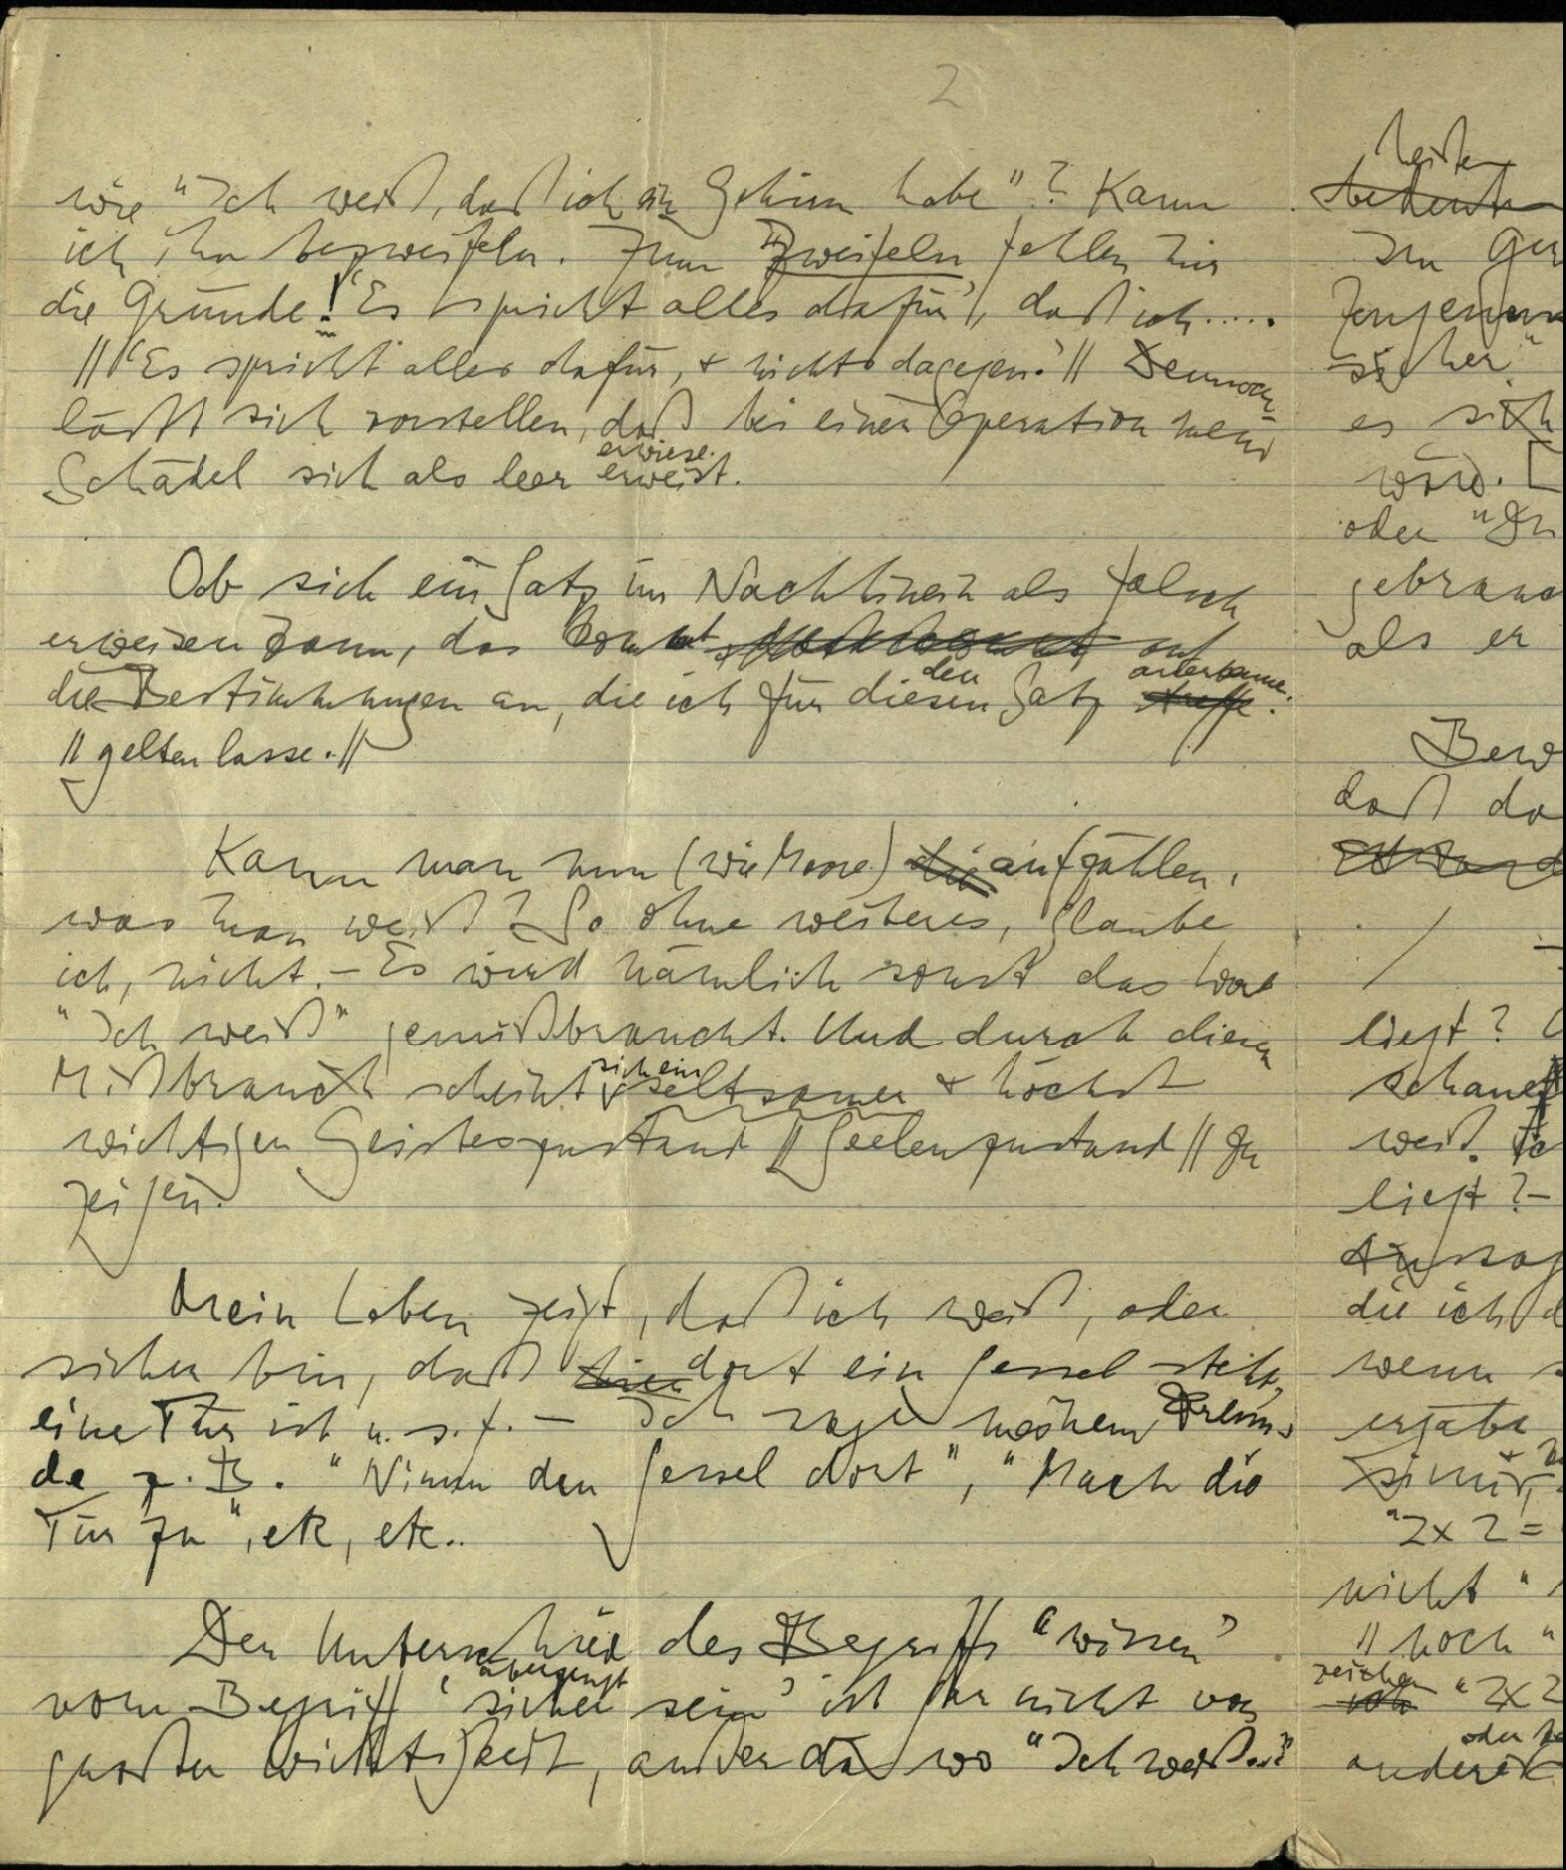 2
wäre "Ich weiß, daß ich ein Gehirn habe"? Kann
ich ihn bezweifeln. Zum Zweifeln fehlen mir
die Gründe! 'Es spricht alles dafür', daß ich.....
//'Es spricht alles dafür, + nichts dagegen.'// Dennoch
läßt sich vorstellen, daß bei einer Operation mein
erwiese.
Schädel sich als leer erweist.
Ob sich ein Satz im Nachhinein als falsch
erweisen kann, das kommt auf
den
die Bestimmungen an, die ich für diesen Satz treffe.
// gelten lasse.//
Kann man nun (wie Moore) die aufzählen,
was man weiß? So ohne weiteres, glaube
ich, nicht. – Es wird nämlich sonst das Wort
"Ich weiß" gemißbraucht. Und durch diesen
sich ein
Mißbrauch scheint seltsamer + höchst
wichtigen Geisteszustand // Seelenzustand // zu
zeigen.
Mein Leben zeigt, daß ich weiß, oder
sicher bin, daß hier dort ein Sessel steht,
eine Tür ist u.s.f. – Ich sage meinem Freun-
de z.B. "Nimm den Sessel dort", "Mach die
Tür zu", etc, etc..
Der Unterschied des Begriffs 'wissen'
überzeugt
vom Begriff 'sicher sein' ist gar nicht von
großer Wichtigkeit, außer da wo "Ich weiß..."
leisten
bedeuten
Im Ger
sicher"
es sich
würd. [
oder "Ich
gebrauc
als er
Bew
daß da
liegt?
schaue
weiß.
liegt? –
Aussag
die ich d
wenn s
ergäbe
"2x2=
nicht "
// noch "
zeichen
"2x2
oder
andere